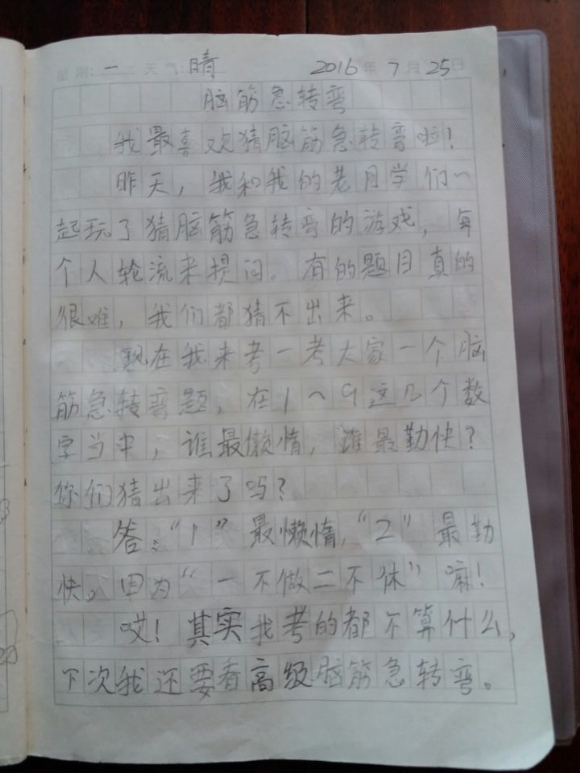 星期: 一 天气: 晴 2016年7月25日
脑筋急转弯
我最喜欢猜脑筋急转弯啦!
昨天,我和我的老同学们一
起玩了猜脑筋急转弯的游戏,每
个人轮流来提问,有的题目真的
很难,我们都猜不出来。
现在我来考一考大家一个脑
筋急转弯题,在1~9这几个数
字当中,谁最懒惰,谁最勤快?
你们猜出来了吗?
答:“1”最懒惰,“2”最勤
快。因为“一不做二不休”嘛!
哎!其实我考的都不算什么,
下次我还要看高级脑筋急转弯。